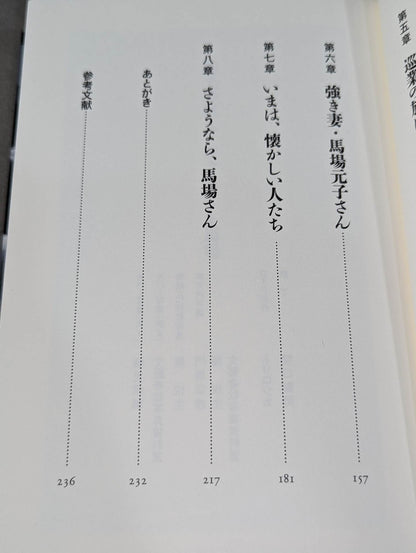 第五章
第六章 強き妻・馬場元子さん 157
第七章 いまは、懐かしい人たち 181
第八章 さようなら、馬場さん 217
あとがき 232
参考文献 236